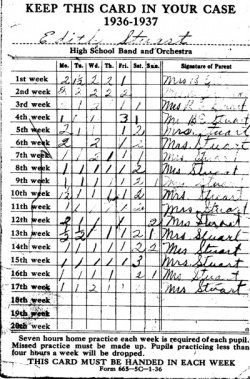 KEEP THIS CARD IN YOUR CASE
1936-1937
Edith Stuart
High School Band and Orchestra
Mo. Tu. Wd. Th. Fri. Sat. Sun. Signature of Parent
1st week 2 1½ 2 2 1 Mrs
2nd week 2 2 2 2 Mrs
3rd week Mrs Stuart
4th week 1 1 3 1 Stuart
5th week 2 1 1 1 2 Mrs. Stuart
6th week 2 2 1 Mrs. Stuart
7th week 1 2 1 1 Mrs Stuart
8th week 1 1 1 1 1 2 Mrs Stuart
9th week 1 1 1 1 1 2 Mrs
10th week 1 1 2 Mrs Stuart
11th week 1 1 1 1 1 2 Mrs Stuart
12th week 2 1 1 1 2 Mrs Stuart
13th week 1 1 2 1 Mrs Stuart
14th week 1 1 1 1 2 2 Mrs Stuart
15th week 1 1 1 1 3 Mrs. Stuart
16th week 1 1 1 1 2 1 Mrs Stuart
17th week 1 1 2 1 1 Mrs Stuart
18th week
19th week
20th week
Seven hours home practice each week is required of each pupil.
Missed practice must be made up. Pupils practicing less than
four hours a week will be dropped.
THIS CARD MUST BE HANDED IN EACH WEEK
Form 665—5C—1-36